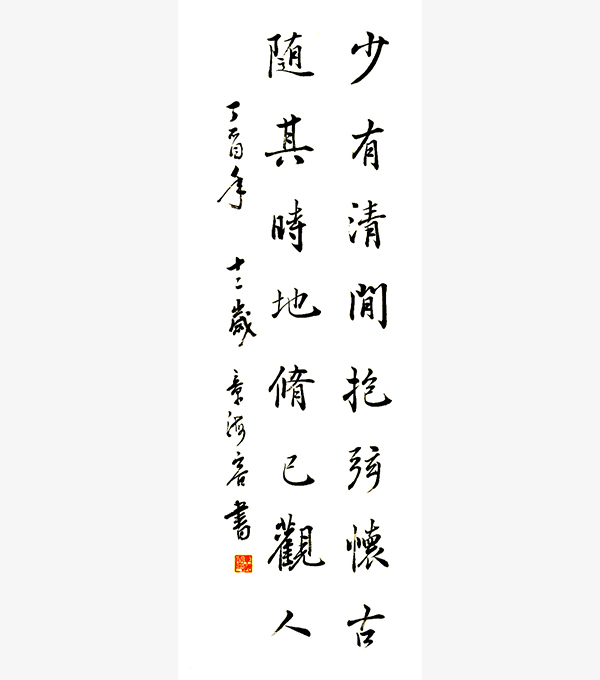 少有清閒抱弦懷古
随其時地脩己觀人
丁酉年 十二歲 章海容書